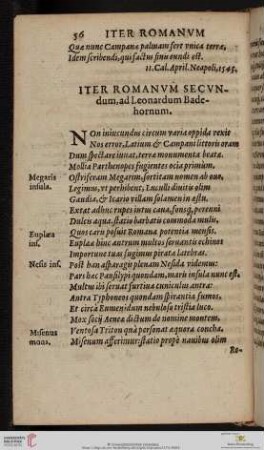 56 ITER ROMANVM
Quæ nunc Campanæ palmam fert vnica terræ,
Idem scribendi, qui factus finis eundi est.
11. Cal. April. Neapoli, 1543.
ITER ROMANVM SECVN-
dum, ad Leonardum Bade-
hornum.
NOn iniucundus circum varia oppida vexit
Nos error, Latium & Campani littoris oram
Dum spectare iuuat, terræ monumenta beatæ.
Mollia Parthenopes fugientes ocia primùm,
Ostriferam Megarim, sortitam nomen ab ouo,
Megaris
insula.
Legimus, vt perhibent, Luculli diuitis olim
Gaudia, & Icario villam solamen in æstu.
Extat adhuc rupes intus caua, fonsq́; perenni
Dulcis aqua, statio barbatis commoda mullis,
Quos caro posuit Romana potentia mensis.
Euplœa
ins.
Euplœæ hinc antrum multos seruantis echinos
Importuni tuas fugimus pirata latebras.
Nesis ins.
Post hanc asparagis plenam Nesida videmus:
Pars hæc Pausilypi quondam, maris insula nunc est.
Multus ibi seruat furtiua cuniculus antra:
Antra Typhoneos quondam spirantia fumos,
Et circà Eumenidum nebuloso tristia luco.
Mox socij Aeneæ dictum de nomine montem,
Misenus
mons.
Ventosa Triton quà personat æquora concha,
Misenum afferimur: statio propè nauibus olim
Ro-